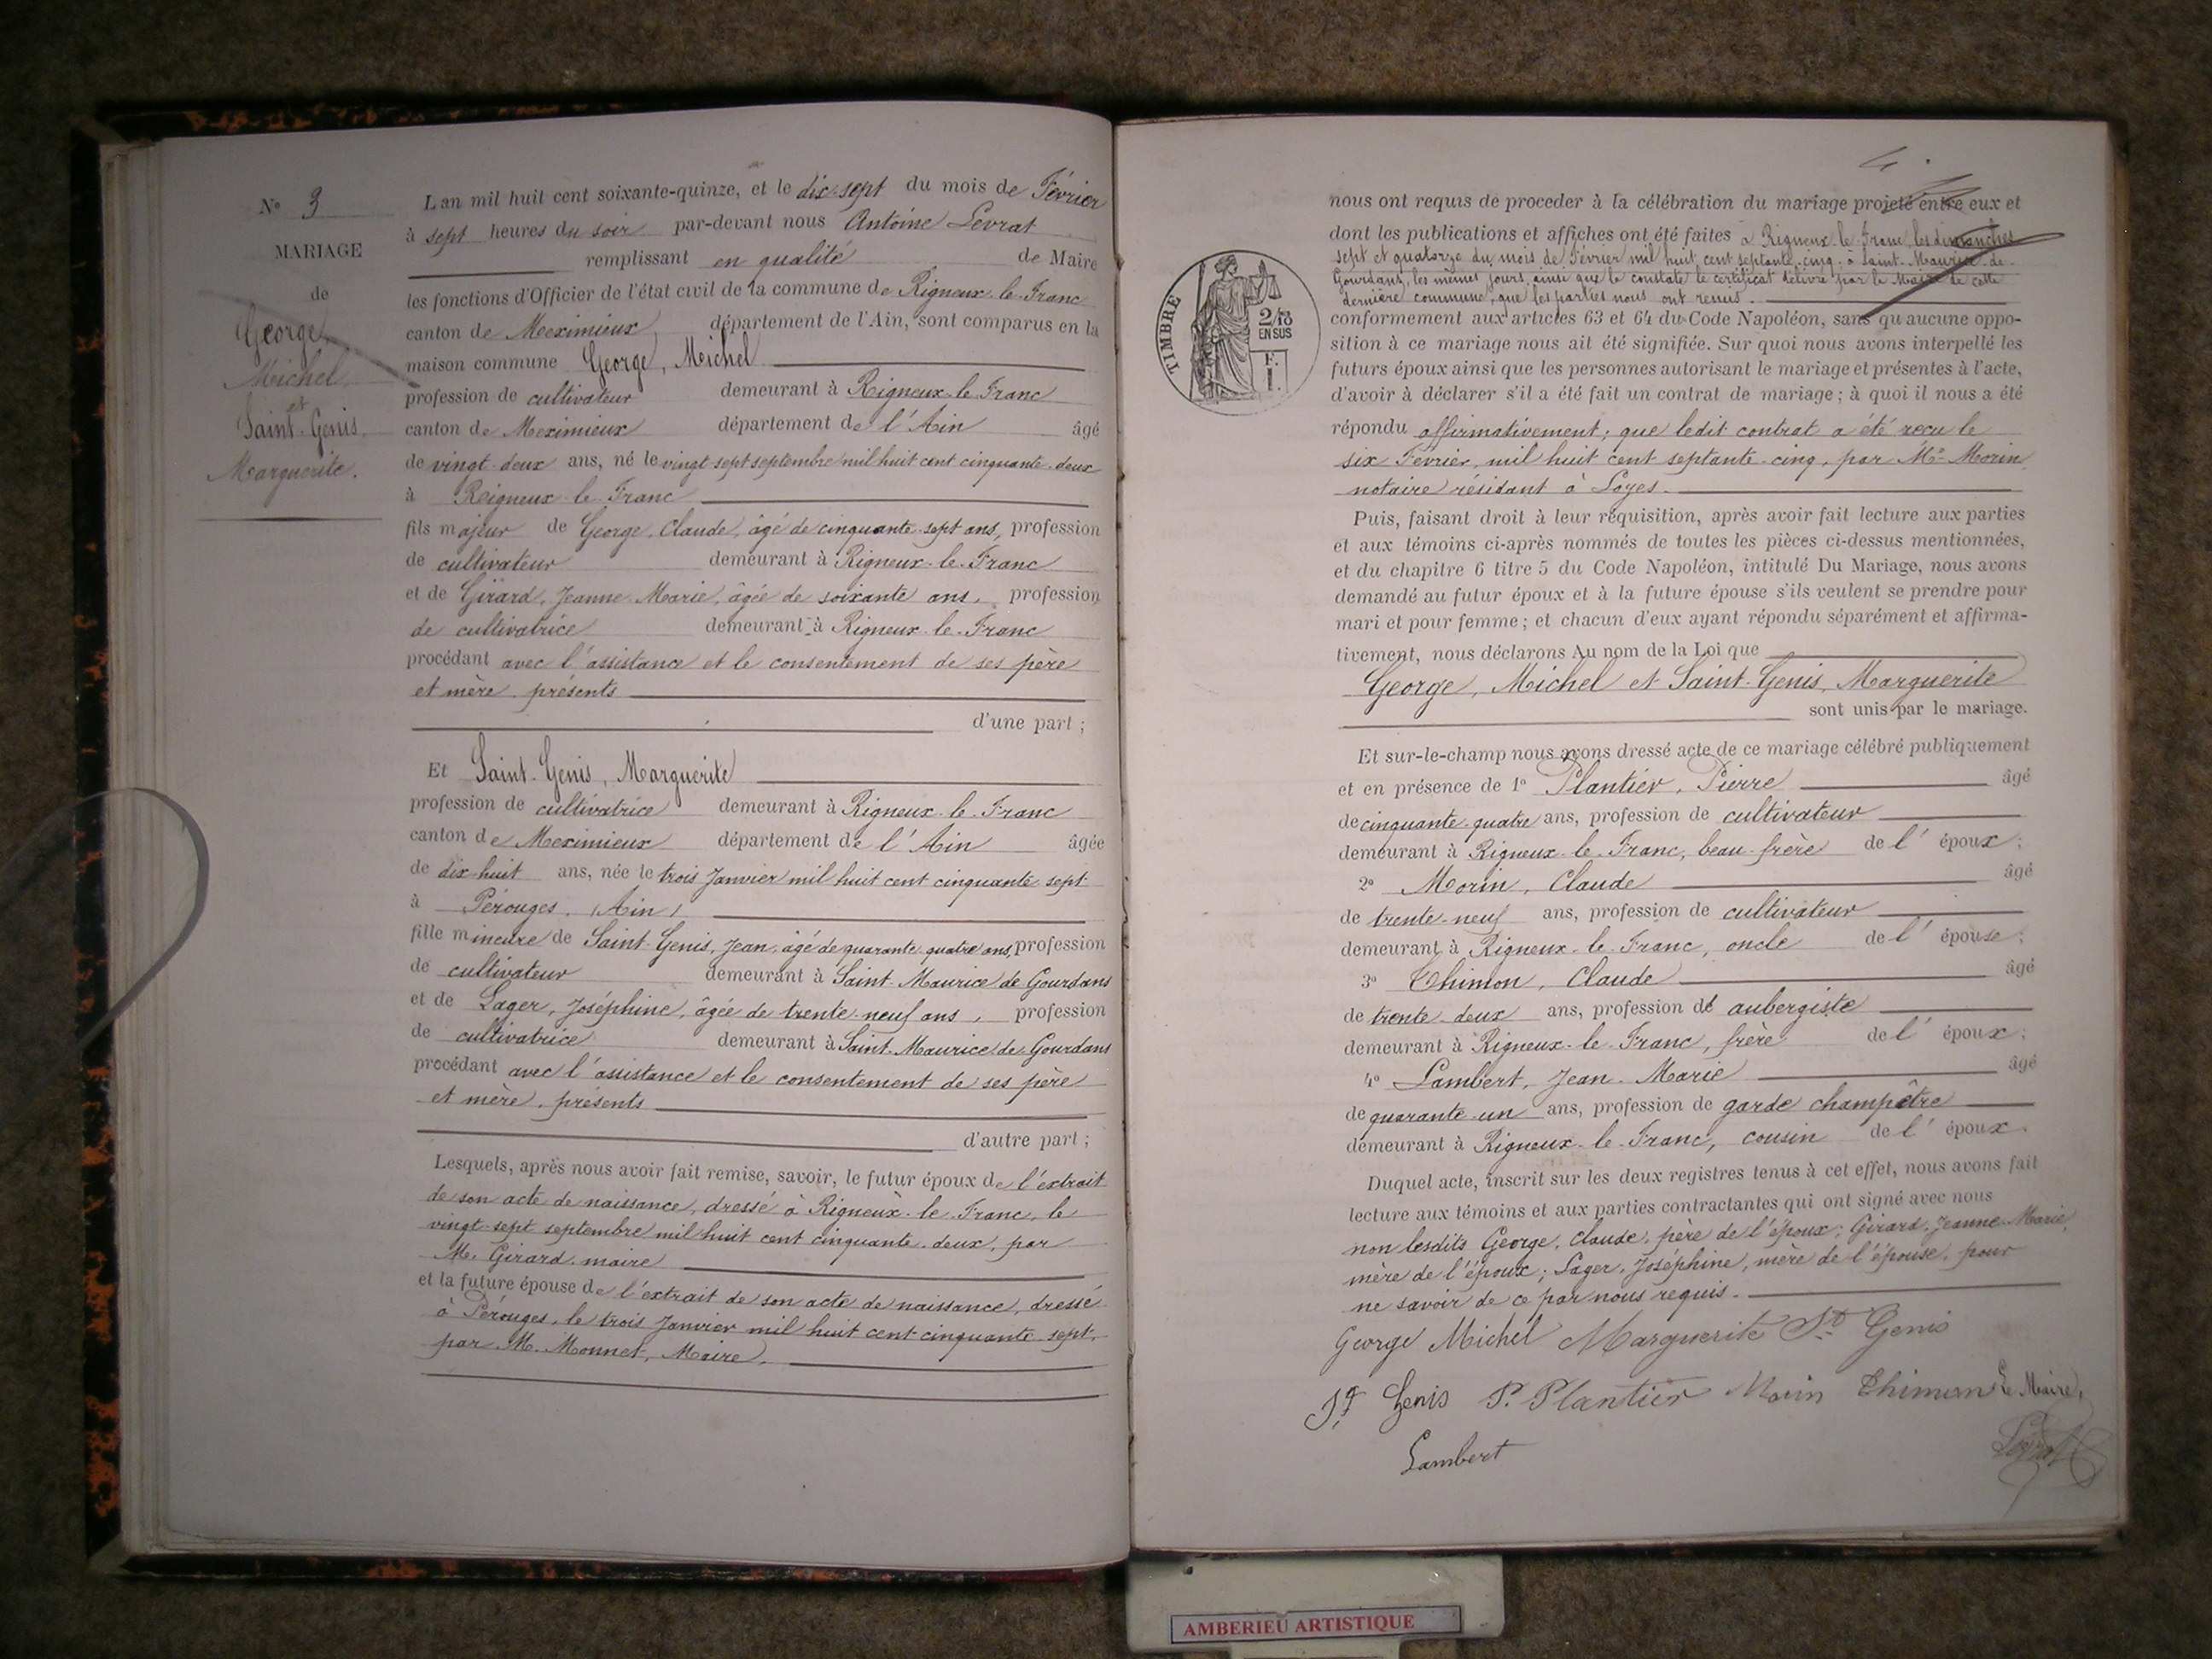 N° 3
MARIAGE
de
George,
Michel,
et
Saint-Genis,
Marguerite.
L'an mil huit cent soixante-quinze, et le dix-sept du mois de Février
à sept heures du soir par-devant nous Antoine Levrat
remplissant en qualité de Maire
les fonctions d'Officier de l'état civil de la commune de Rigneux-le-Franc
canton de Meximieux, département de l'Ain, sont comparus en la
maison commune George, Michel
profession de cultivateur demeurant à Rigneux-le-Franc
canton de Meximieux département de l'Ain âgé
de vingt-deux ans, né le vingt sept septembre mil huit cent cinquante-deux
à Rigneux-le-Franc
fils majeur de George, Claude, âgé de cinquante-sept ans, profession
de cultivateur demeurant à Rigneux-le-Franc
et de Girard, Jeanne-Marie, âgée de soixante ans, profession
de cultivatrice demeurant à Rigneux-le-Franc
procédant avec l'assistance et le consentement de ses père
et mère, présents
d'une part;
Et Saint-Genis, Marguerite
profession de cultivatrice demeurant à Rigneux-le-Franc
canton de Meximieux département de l'Ain âgée
de dix-huit ans, née le trois Janvier mil huit cent cinquante-sept
à Pérouges, (Ain)
fille mineure de Saint-Genis, Jean, âgé de quarante-quatre ans, profession
de cultivateur demeurant à Saint-Maurice de Gourdans
et de Lager, Joséphine, âgée de trente-neuf ans, profession
de cultivatrice demeurant à Saint-Maurice de Gourdans
procédant avec l'assistance et le consentement de ses père
et mère, présents
d'autre part;
Lesquels, après nous avoir fait remise, savoir, le futur époux de l'extrait
de son acte de naissance, dressé à Rigneux-le-Franc, le
vingt-sept septembre mil huit cent cinquante-deux, par
M. Girard, maire
et la future épouse de l'extrait de son acte de naissance, dressé
à Pérouges, le trois Janvier mil huit cent cinquante-sept,
par M. Monnet, Maire.
4.
nous ont requis de proceder à la célébration du mariage projeté entre eux et
dont les publications et affiches ont été faites à Rigneux-le-Franc, les dimanches
sept et quatorze du mois de Février mil huit cent septante-cinq, à Saint-Maurice-de-
Gourdans, les mêmes jours, ainsi que le constate le certificat délivré par le Maire de cette
dernière commune, que les parties nous ont remis.
TIMBRE
2/10
EN SUS
conformement aux articles 63 et 64 du Code Napoléon, sans qu'aucune oppo-
sition à ce mariage nous ait été signifiée. Sur quoi nous avons interpellé les
futurs époux ainsi que les personnes autorisant le mariage et présentes à l'acte,
d'avoir à déclarer s'il a été fait un contrat de mariage; à quoi il nous a été
répondu affirmativement; que ledit contrat a été reçu le
six Février, mil huit cent septante-cinq, par Me Morin
notaire résidant à Loyes.
Puis, faisant droit à leur réquisition, après avoir fait lecture aux parties
et aux témoins ci-après nommés de toutes les pièces ci-dessus mentionnées,
et du chapitre 6 titre 5 du Code Napoléon, intitulé Du Mariage, nous avons
demandé au futur époux et à la future épouse s'ils veulent se prendre pour
mari et pour femme; et chacun d'eux ayant répondu séparément et affirma-
tivement, nous déclarons Au nom de la Loi que
George, Michel et Saint-Genis, Marguerite
sont unis par le mariage.
Et sur-le-champ nous avons dressé acte de ce mariage célébré publiquement
et en présence de 1° Plantier, Pierre âgé
de cinquante-quatre ans, profession de cultivateur
demeurant à Rigneux-le-Franc, beau-frère de l'époux;
2° Morin, Claude âgé
de trente-neuf ans, profession de cultivateur
demeurant à Rigneux-le-Franc, oncle de l'épouse;
3° Thimon, Claude âgé
de trente-deux ans, profession de aubergiste
demeurant à Rigneux-le-Franc, frère de l'époux;
4° Lambert, Jean-Marie âgé
de quarante-un ans, profession de garde champêtre
demeurant à Rigneux-le-Franc, cousin de l'époux.
Duquel acte, inscrit sur les deux registres tenus à cet effet, nous avons fait
lecture aux témoins et aux parties contractantes qui ont signé avec nous
non lesdits George, Claude, père de l'époux; Girard, Jeanne-Marie,
mère de l'époux; Lager, Joséphine, mère de l'épouse, pour
ne savoir de ce par nous requis.
George Michel Marguerite St Genis
St Genis P. Plantier Morin Thimon Le Maire,
Lambert Levrat
AMBERIEU ARTISTIQUE